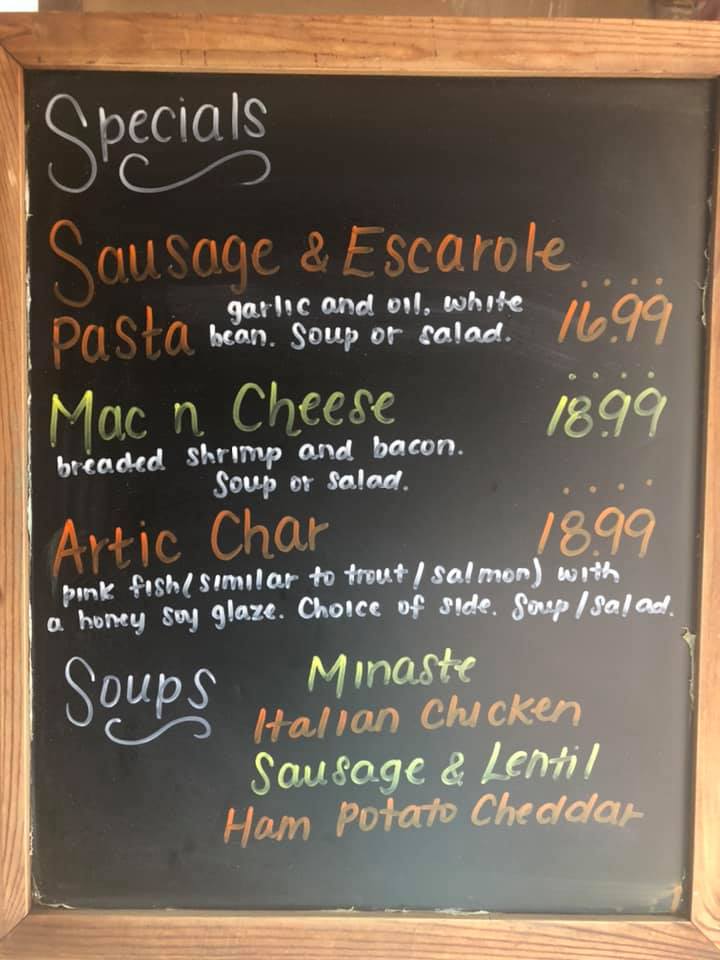 Specials
Sausage & Escarole
Pasta garlic and oil, white 16.99
bean. Soup or salad.
Mac n Cheese 18.99
breaded shrimp and bacon.
Soup or salad.
Artic Char 18.99
pink fish (similar to trout/salmon) with
a honey soy glaze. Choice of side. Soup/salad.
Soups Minaste
Italian Chicken
Sausage & Lentil
Ham Potato Cheddar